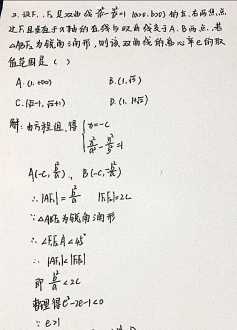 2. 设F₁、F₂是双曲线x²/a²-y²/b²=1 (a>0, b>0)的左、右两焦点,
过F₁且垂直于x轴的直线与双曲线交于A、B两点,若
△ABF₂为锐角三角形,则该双曲线的离心率e的取
值范围是( )
A.(1,+∞) B.(1,√3)
C.(√2-1,√2+1) D.(1,1+√2)
解:由方程组,得 { x=-c
x²/a²-y²/b²=1
A(-c, b²/a), B(-c, -b²/a)
∴|AF₁|=b²/a |F₁F₂|=2c
∵△ABF₂为锐角三角形
∴∠F₁F₂A<45°
∴|AF₁|<|F₁F₂|
即 b²/a<2c
整理得e²-2e-1<0
∵e>1